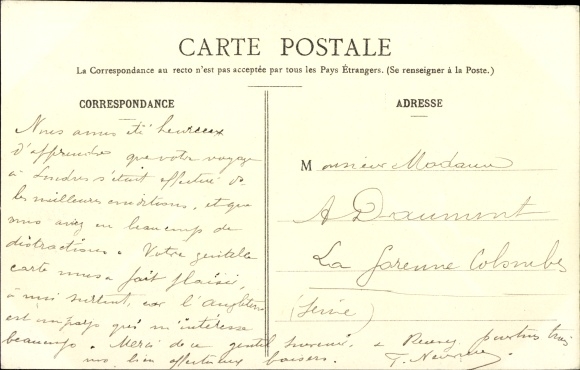 CARTE POSTALE
La Correspondance au recto n'est pas acceptée par tous les Pays Étrangers. (Se renseigner à la Poste.)
CORRESPONDANCE
Nous avons été heureux
d'apprendre que votre voyage
à Londres s'était effectué de
les meilleures conditions, et que
vous avez eu beaucoup de
distractions. Votre gentille
carte nous a fait plaisir,
à moi surtout, car l'Angleterre
est un pays qui m'intéresse
beaucoup. Merci de ce gentil souvenir, &
nos bien affectueux baisers.
ADRESSE
Monsieur Madame
A Daumont
La Garenne Colombes
(Seine)